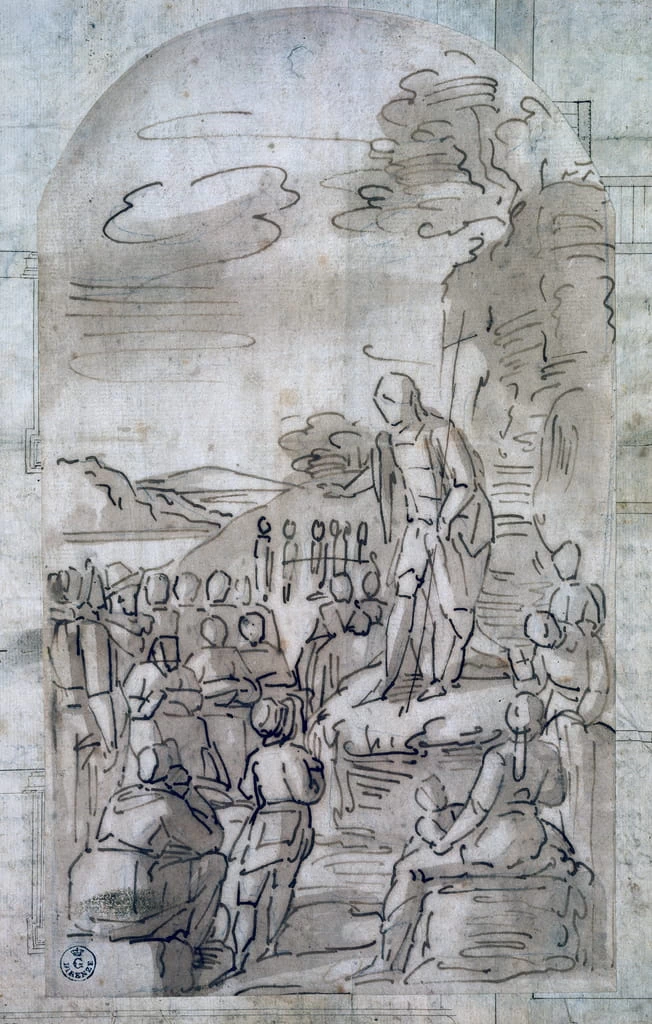 G
FIRENZE